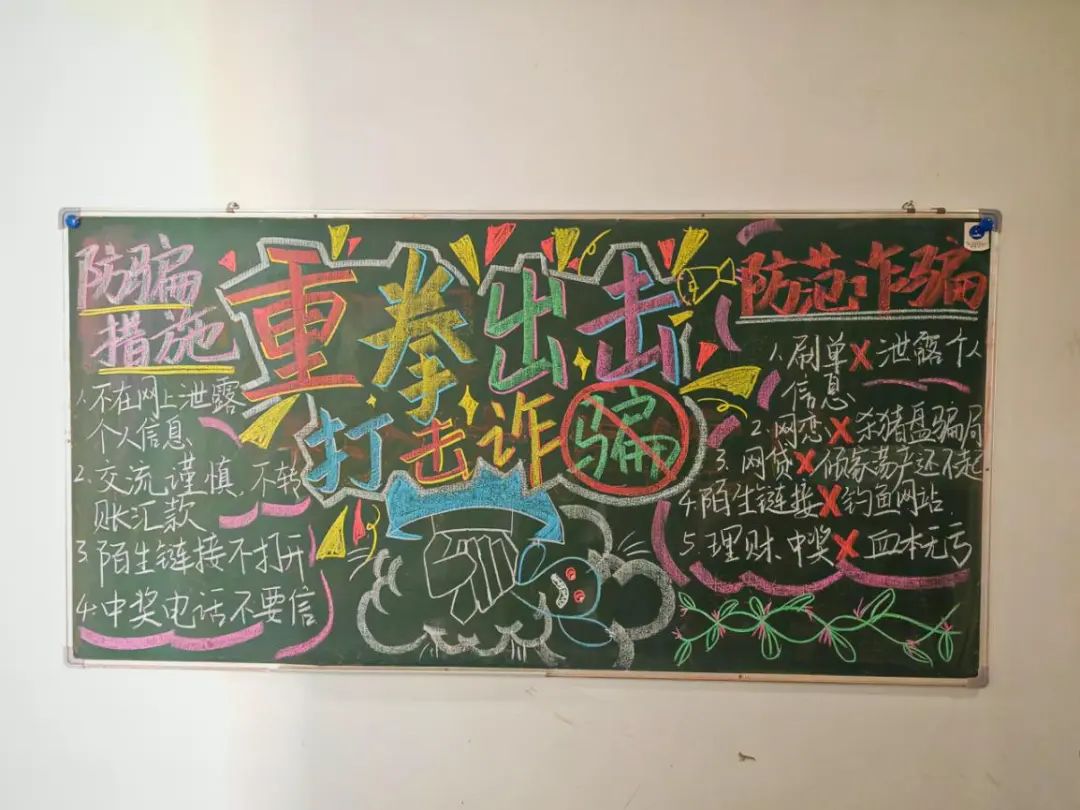 防骗
措施
1、不在网上泄露
个人信息
2、交流谨慎,不转
账汇款
3、陌生链接不打开
4、中奖电话不要信
重拳出击
打击诈骗
防范诈骗
1、刷单X泄露个人
信息
2、网恋X杀猪盘骗局
3、网贷X倾家荡产还不起
4、陌生链接X钓鱼网站
5、理财、中奖X血本无亏